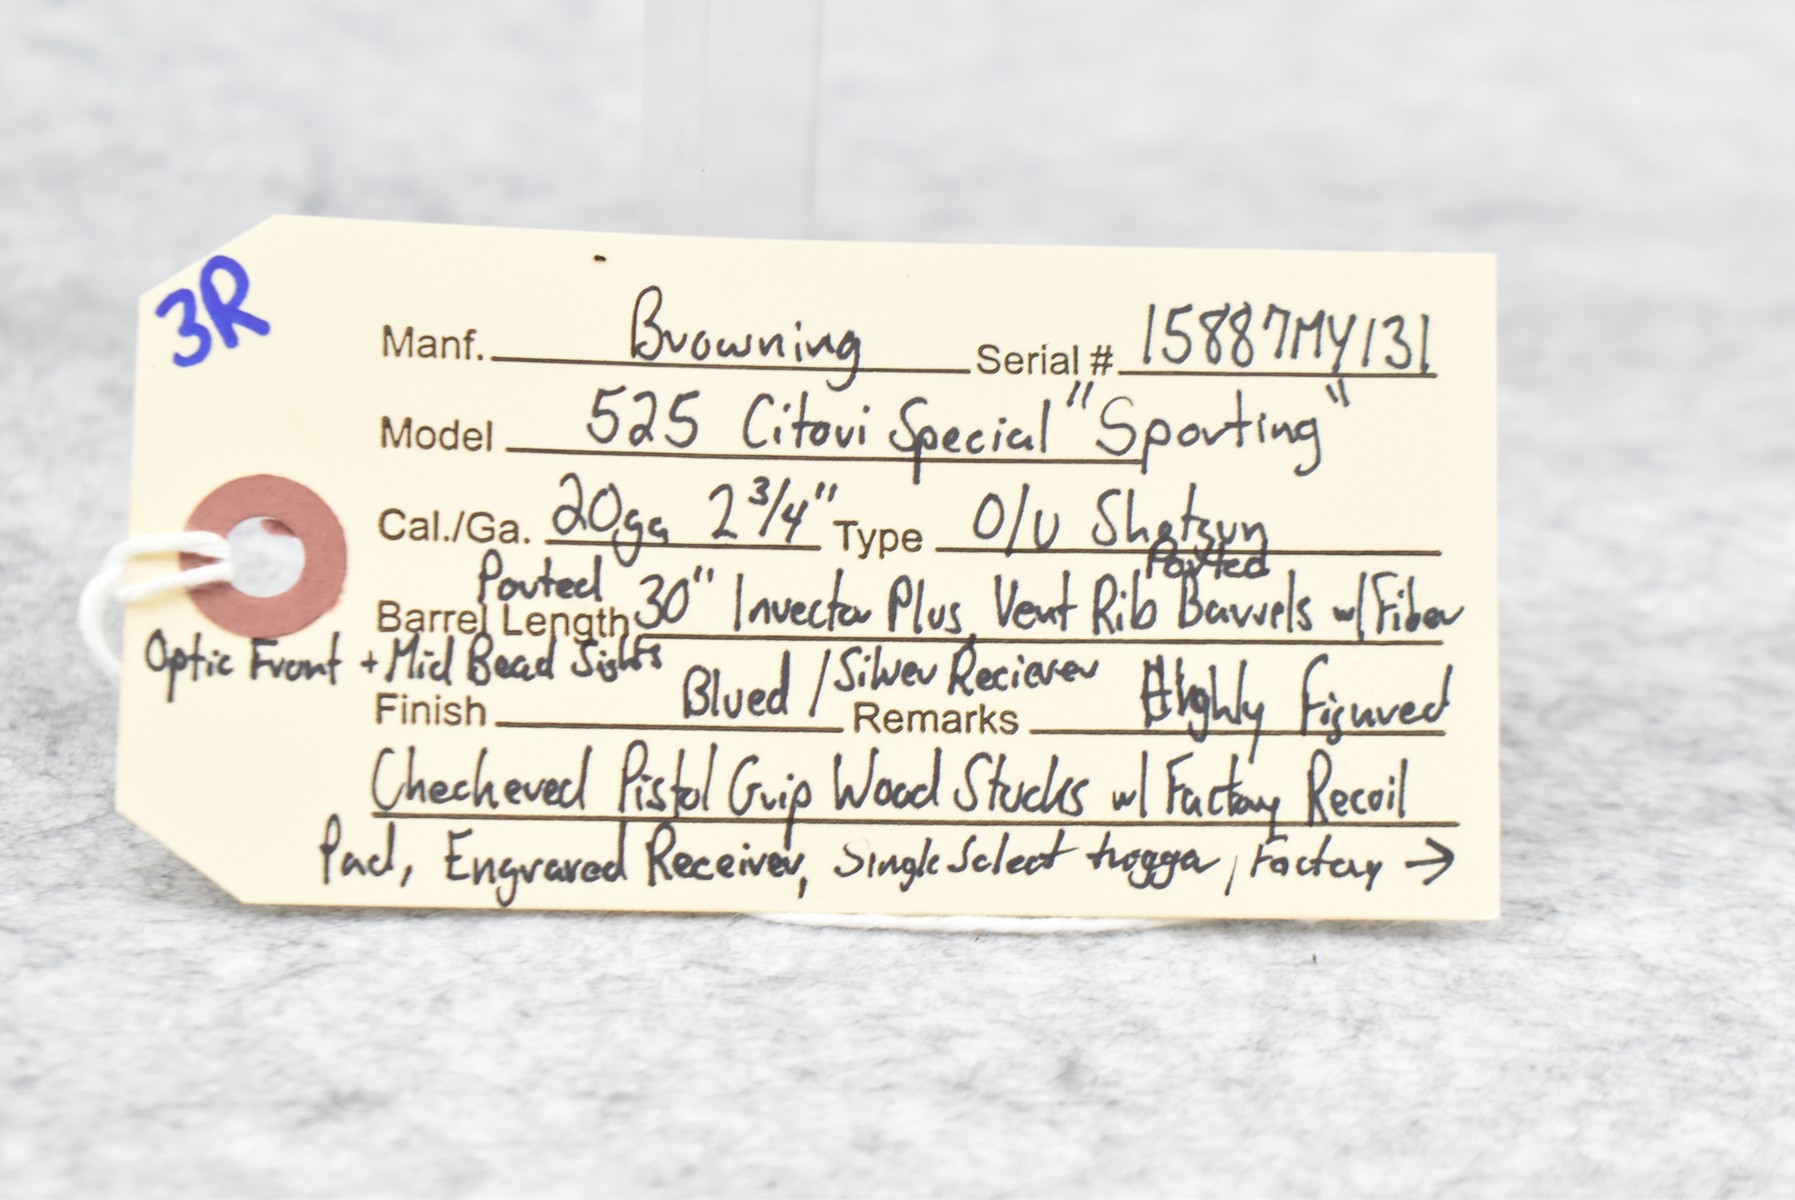 3R
Manf. Browning Serial # 15887MY131
Model 525 Citori Special "Sporting"
Cal./Ga. 20ga 2 3/4" Type O/U Shotgun
Ported Ported
Barrel Length 30" Invector Plus, Vent Rib Barrels w/ Fiber
Optic Front + Mid Bead Sights
Finish Blued / Silver Reciever Remarks Highly Figured
Checkered Pistol Grip Wood Stocks w/ Factory Recoil
Pad, Engraved Receiver, Single Select trigger, Factory →